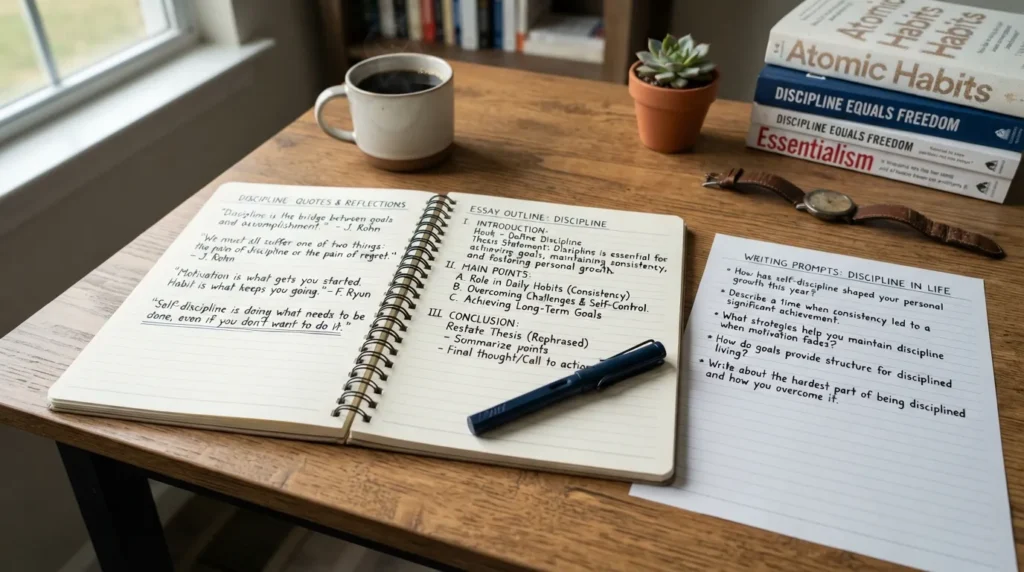 DISCIPLINE QUOTES & REFLECTIONS
"Discipline is the bridge between goals
and accomplishment." – J. Rohn
"We must all suffer one of two things:
the pain of discipline or the pain of regret."
– J. Rohn
"Motivation is what gets you started.
Habit is what keeps you going." – F. Ryun
"Self-discipline is doing what needs to be
done, even if you don't want to do it."
ESSAY OUTLINE: DISCIPLINE
I. INTRODUCTION:
Hook – Define Discipline
Thesis Statement: Discipline is essential for
achieving goals, maintaining consistency,
and fostering personal growth.
II. MAIN POINTS:
A. Role in Daily Habits (Consistency)
B. Overcoming Challenges & Self-Control.
C. Achieving Long-Term Goals
III. CONCLUSION:
Restate Thesis (Rephrased)
– Summarize points
– Final thought/Call to action
WRITING PROMPTS: DISCIPLINE IN LIFE
• How has self-discipline shaped your personal
growth this year?
• Describe a time when consistency led to a
significant achievement.
• What strategies help you maintain discipline
when motivation fades?
• How do goals provide structure for disciplined
living?
• Write about the hardest part of being disciplined
and how you overcome it.
Atomic
Habits
Habits
Habits
Atomic Habits
DISCIPLINE EQUALS FREEDOM
DISCIPLINE EQUALS FREEDOM
Essentialism